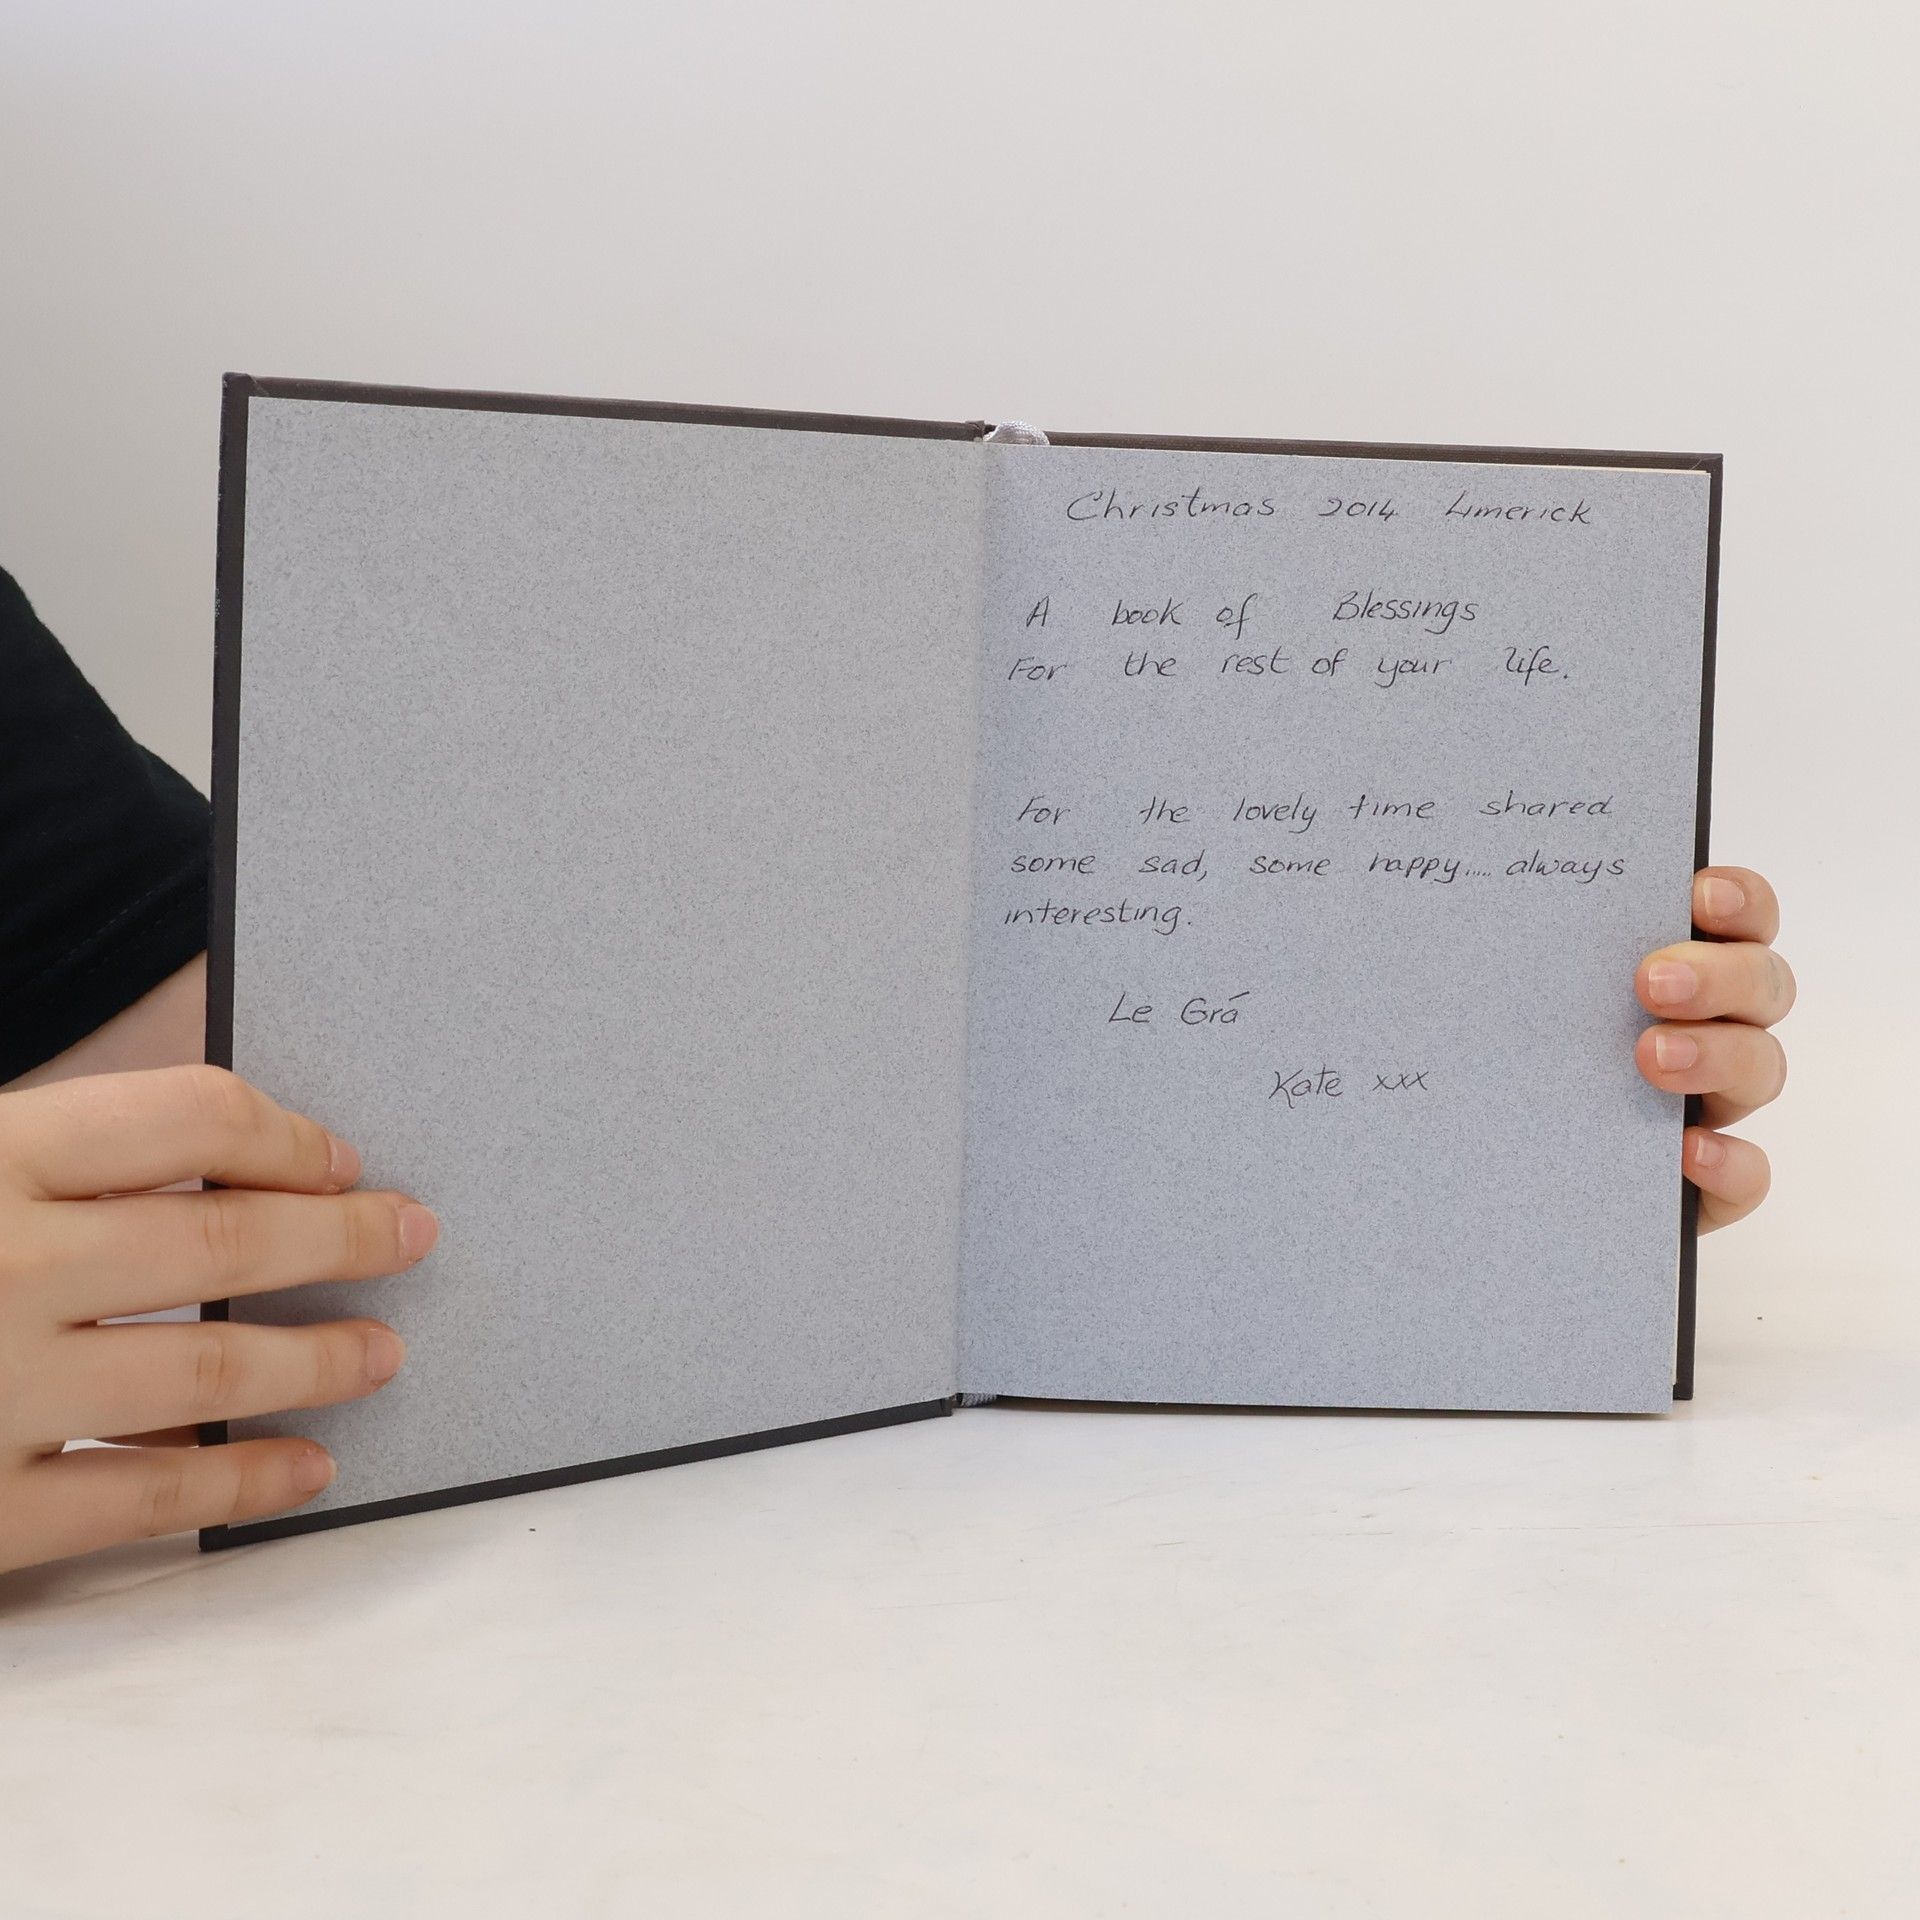 Christmas 2014 Limerick
A book of Blessings
For the rest of your life.
For the lovely time shared
some sad, some happy..... always
interesting.
Le Grá
Kate xxx